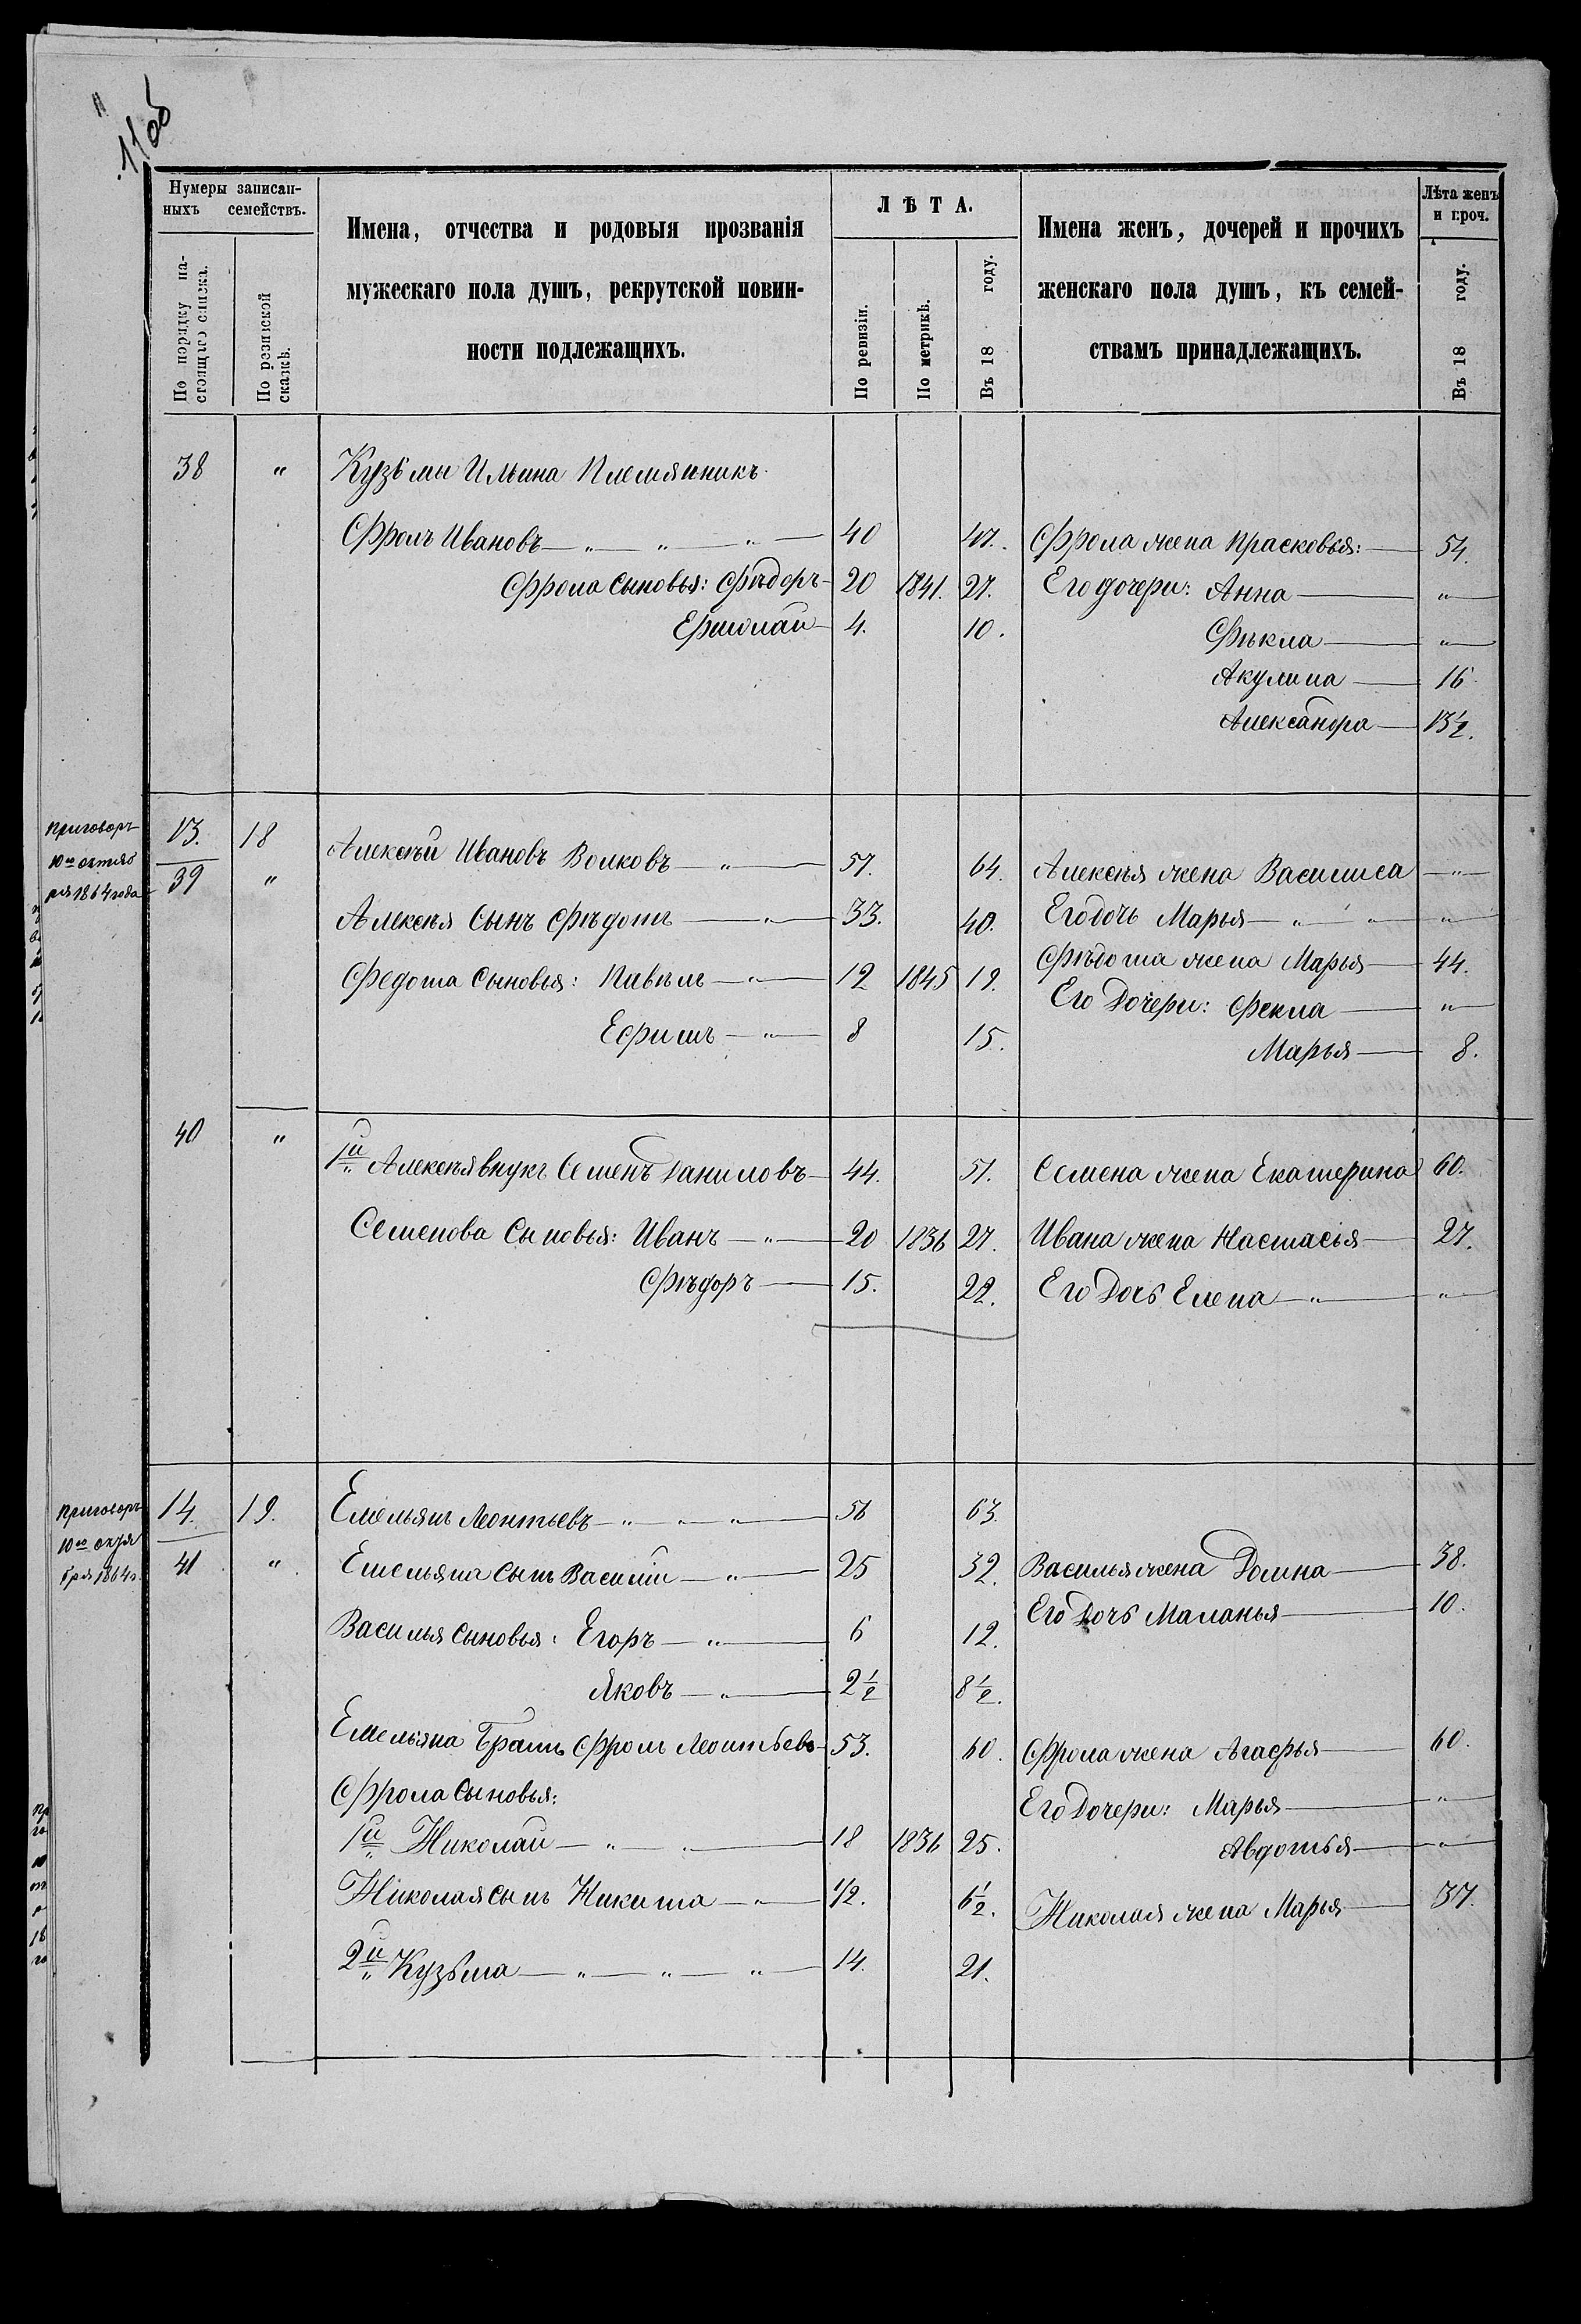 11 об
Нумеры записан-
ныхъ семействъ.
По порядку на-
стоящаго списка.
По ревизской
сказкѣ.
Имена, отчества и родовыя прозванія
мужескаго пола душъ, рекрутской повин-
ности подлежащихъ.
ЛѢТА.
По ревизіи.
По метрикѣ.
Въ 18 году.
Имена женъ, дочерей и прочихъ
женскаго пола душъ, къ семей-
ствамъ принадлежащихъ.
Лѣта женъ
и проч.
Въ 18 году.
38 " Кузьмы Ильина Племянникъ
Фролъ Ивановъ — " — " — " — 40 47. Фрола жена Прасковья: — 54.
Фрола Сыновья: Фѣдоръ — 20 1841. 27. Его дочери: Анна — "
Ермолай — 4. 10. Фѣкла — "
Акулина — 16
Александра — 13½.
Приговоръ
10го октяб
ря 1864 года
13. 18
39 "
Алексѣй Ивановъ Волковъ — " — 57. 64. Алексѣя жена Василиса — "
Алексѣя Сынъ Фѣдотъ — " — 33. 40. Его дочь Марья — " — " — "
Федота Сыновья: Павѣлъ — " — 12 1845 19. Фѣдота жена Марья — 44.
Его Дочери: Фекла — "
Ефимъ — " — 8 15. Марья — 8.
40 " 1й Алексѣя внукъ Семенъ Даниловъ — 44. 51. Семена жена Екатерина 60.
Семенова Сыновья: Иванъ — " — 20 1836 27. Ивана жена Настасья — 27.
Фѣдоръ — 15. 22. Его Дочь Елена — " — "
Приговоръ
10го октя
бря 1864 г.
14. 19. Емельянъ Леонтьевъ — " — " — " — 56 63.
41 " Емельяна Сынъ Василій — " — 25 32. Василья жена Домна — 38.
Его Дочь Маланья — 10.
Василья Сыновья: Егоръ — " — 6 12.
Яковъ — " — 2½ 8½.
Емельяна Братъ Фролъ Леонтьевъ — 53. 60. Фрола жена Агафья — 60.
Фрола Сыновья: Его Дочери: Марья — "
1й Николай — " — 18 1836 25. Авдотья — "
Николая сынъ Никита — " — 1/2. 6½. Николая жена Марья — 37.
2й Кузьма — " — " — " — 14. 21.